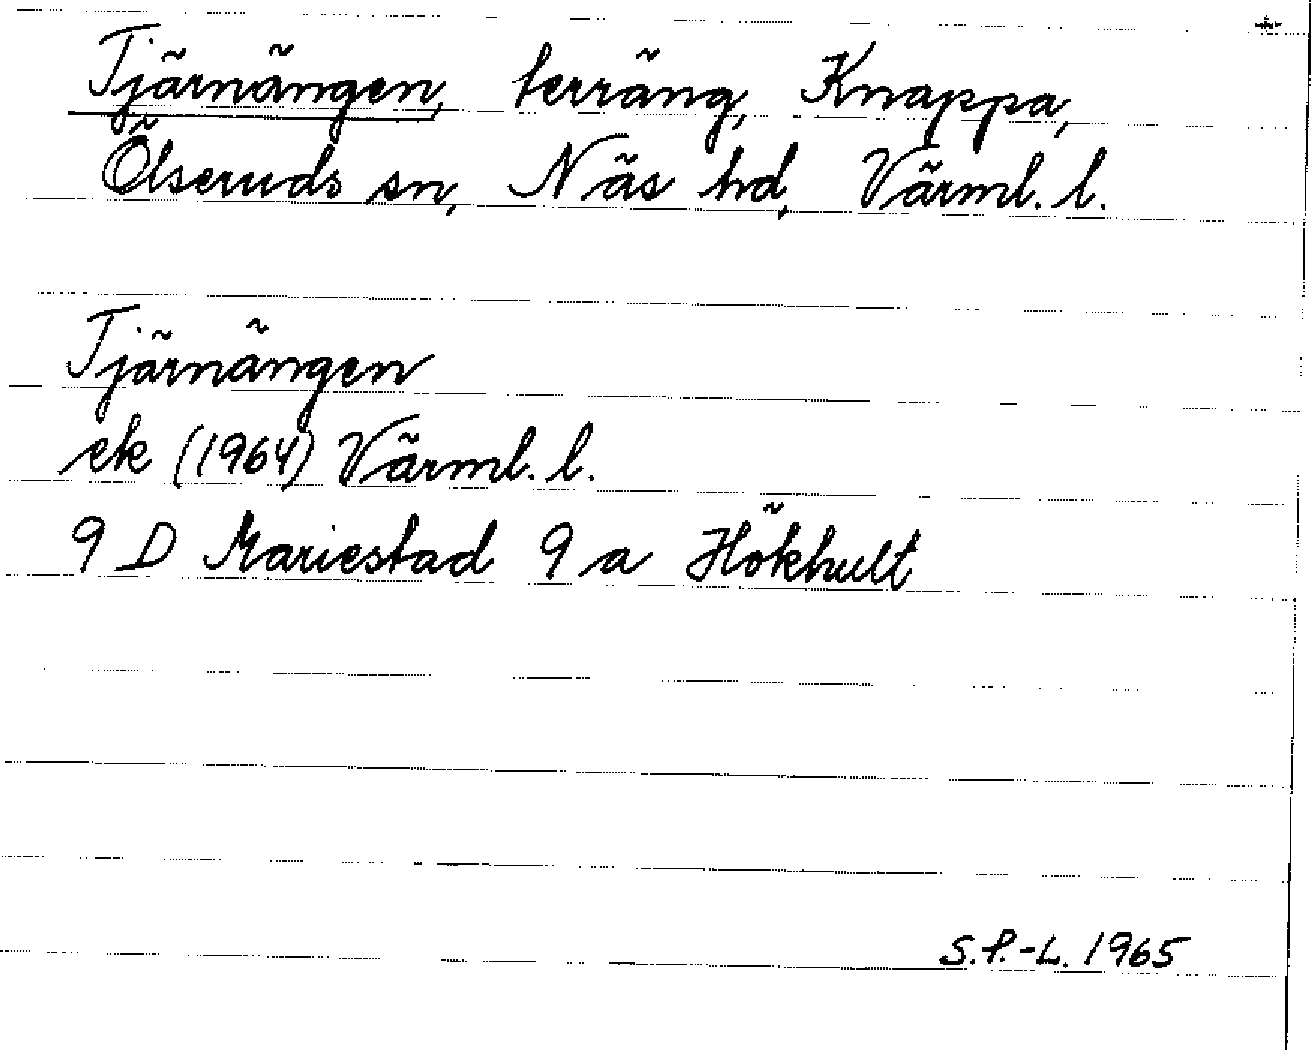 Tjärnängen, terräng, Knappa,
Ölseruds sn, Näs hd, Värml. l.
Tjärnängen
ek (1964) Värml. l.
9 D Mariestad 9 a Hökhult
S.P.-L. 1965